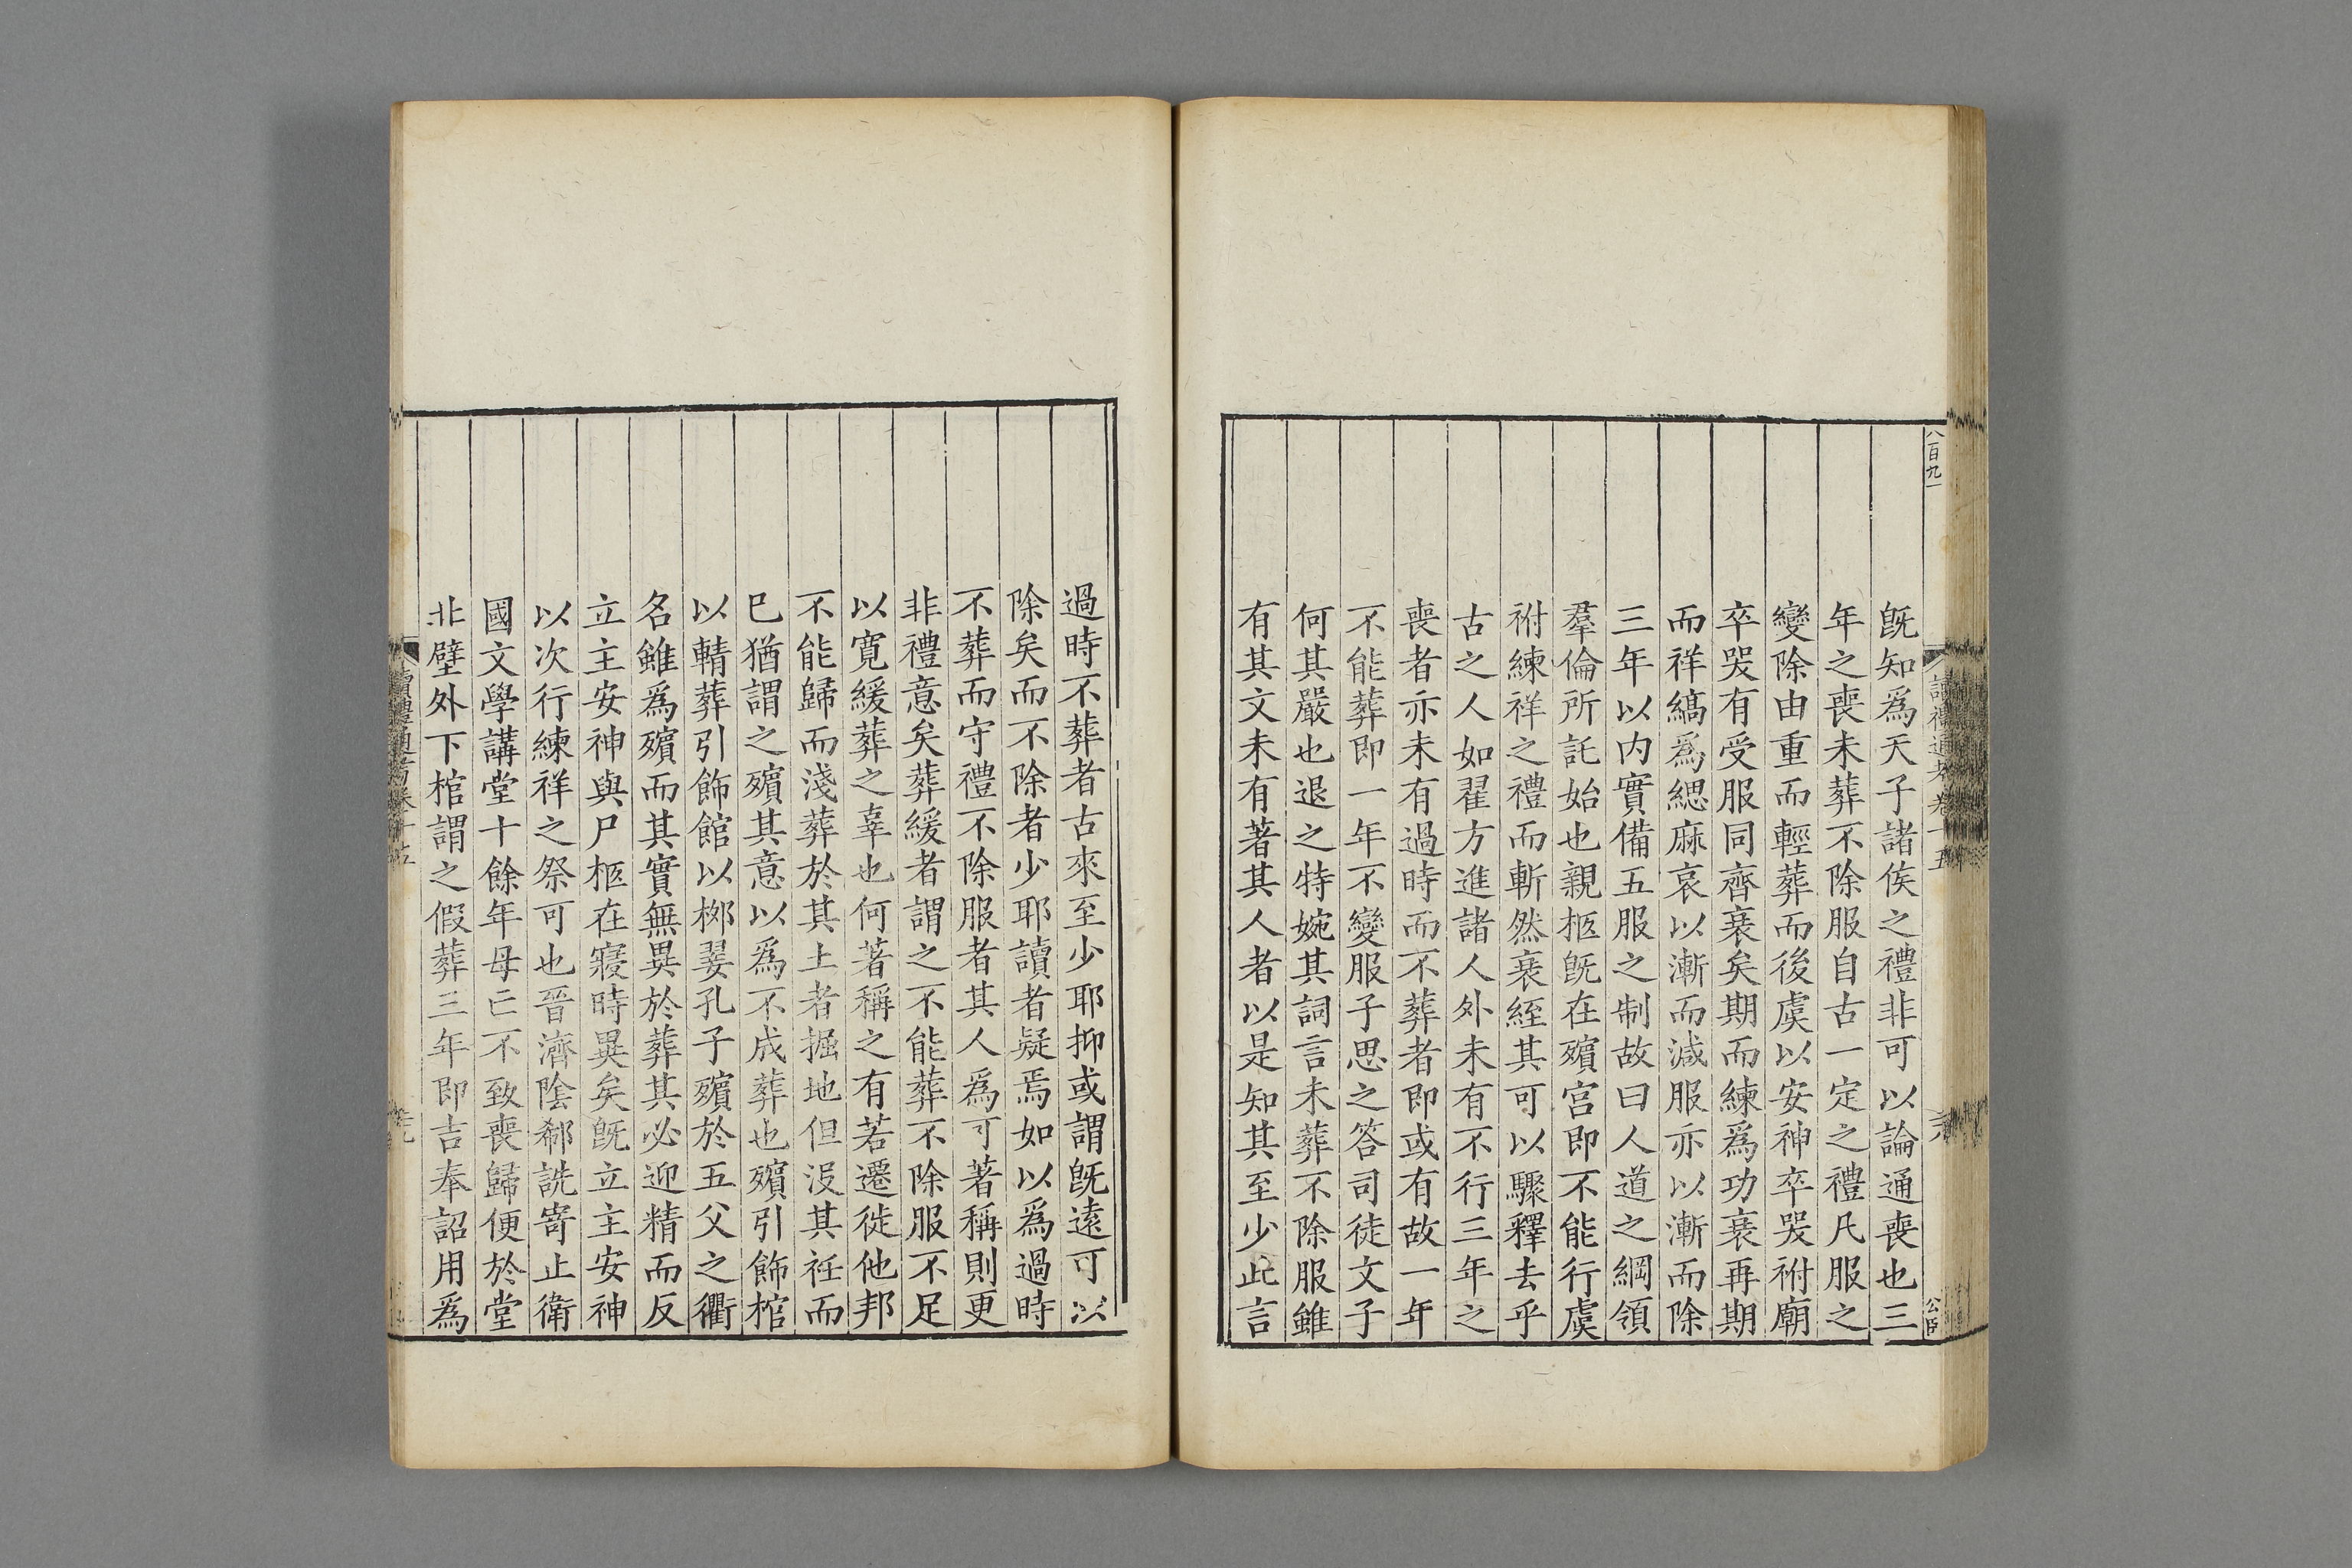 八百九一
讀禮通考卷十五
公臣
旣知爲天子諸侯之禮非可以論通喪也三
年之喪未葬不除服自古一定之禮凡服之
變除由重而輕葬而後虞以安神卒哭祔廟
卒哭有受服同齊衰矣期而練爲功衰再期
而祥縞爲緦麻哀以漸而減服亦以漸而除
三年以内實備五服之制故曰人道之綱領
羣倫所託始也親柩旣在殯宫即不能行虞
祔練祥之禮而斬然衰絰其可以驟釋去乎
古之人如翟方進諸人外未有不行三年之
喪者亦未有過時而不葬者即或有故一年
不能葬即一年不變服子思之答司徒文子
何其嚴也退之特婉其詞言未葬不除服雖
有其文未有著其人者以是知其至少此言
過時不葬者古來至少耶抑或謂旣遠可以
除矣而不除者少耶讀者疑焉如以爲過時
不葬而守禮不除服者其人爲可著稱則更
非禮意矣葬緩者謂之不能葬不除服不足
以寬緩葬之辜也何著稱之有若遷徙他邦
不能歸而淺葬於其土者掘地但沒其衽而
巳猶謂之殯其意以爲不成葬也殯引飾棺
以輤葬引飾館以栁翣孔子殯於五父之衢
名雖爲殯而其實無異於葬其必迎精而反
立主安神與尸柩在寢時異矣旣立主安神
以次行練祥之祭可也晉濟隂郗詵寄止衛
國文學講堂十餘年母亡不致喪歸便於堂
北壁外下棺謂之假葬三年即吉奉詔用爲
讀禮通考卷十五